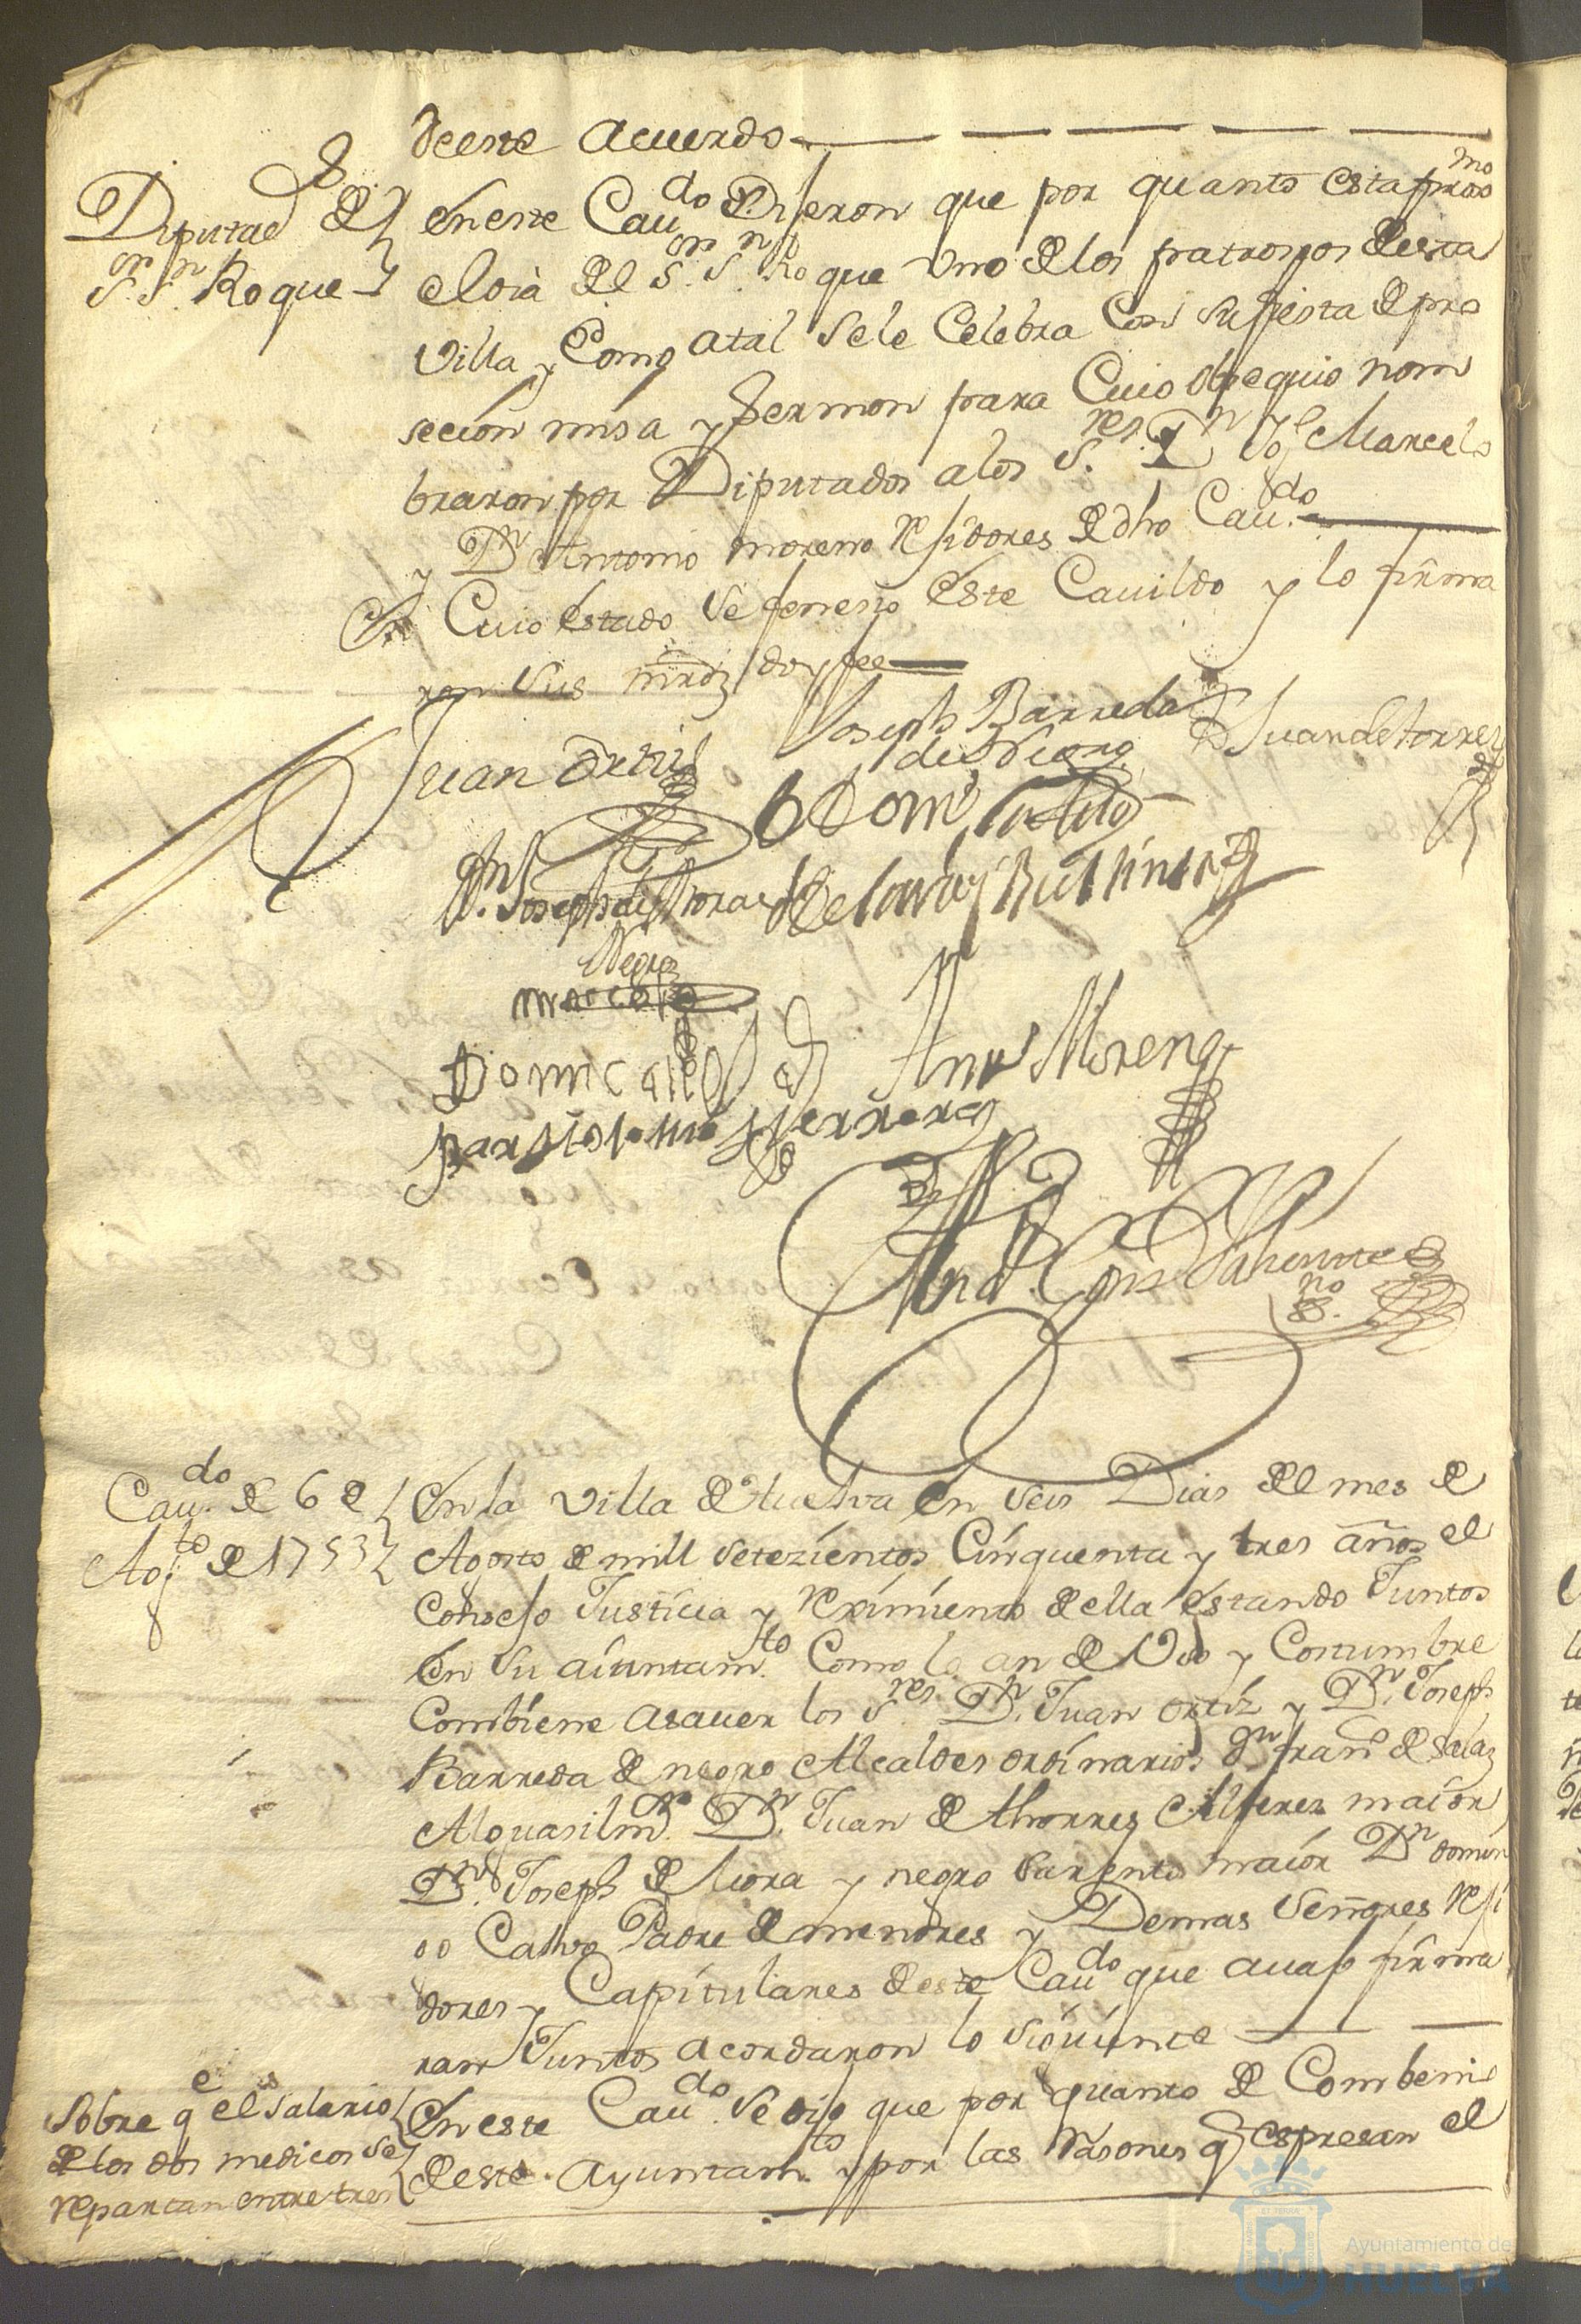 deeste acuerdo
Diputad.s de
Sr. Sn. Roque
En este Cau.do Dijeron que por quanto esta prox.mo
el dia del Sor. Sn. Roque Uno de los patronos desta
Villa y Como atal Sele Celebra Con su fiesta de pro
secion misa y Sermon para Cuio obsequio nom
braron por Diputados alos S.res Dn. Joseph Marcelo
y Dn Antonio moreno Rejidores de dho Cau.do
En Cuio estado Se fenesio Este Cauildo y lo firma
ron Sus mrds doy fee
Juan Ortiz
Joseph Barreda
de Negro
Juan de torres
Dn. Joseph de Mora
Negro
Dom Calbo
Anto Moreno
Bartolome Herrera
And. Gonz
no
Cau.do de 6 de
Agto de 1753
En la villa de Huelva En Seis Dias del mes de
Agosto de mill Setezientos Cinquenta y tres años el
Consejo Justicia y Reximiento della Estando Juntos
En Su aiuntam.to Como lo an de Uso y Costumbre
Combiene asauer los S.res Dn. Juan ortiz y Dn. Joseph
Barreda de negro Alcaldes ordinarios Dn fran.co de Salaz
Alguasil m.r Dn. Juan de thorres Alferez maior
Dn. Joseph de Mora y negro Sarjento maior Dn domin
go Calvo Padre de menores y Demas Señores Reji
dores y Capitulares deeste Cau.do que auajo firma
ran Juntos acordaron lo siguiente
Sobre q.e el salario
de los dos medicos se
repartan entre tres
En este Cau.do Se dijo que por quanto de Combenio
deeste Ayuntam.to y por las Rasones q.e espresan el
Ayuntamiento de
HUELVA